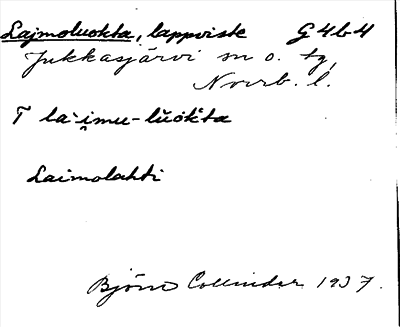 Lajmoluokta, lappviste G4b4
Jukkasjärvi sn o. tg,
Norrb. l.
T la·i̯mu-lŭok̄ta
Laimolahti
Björn Collinder 1937.